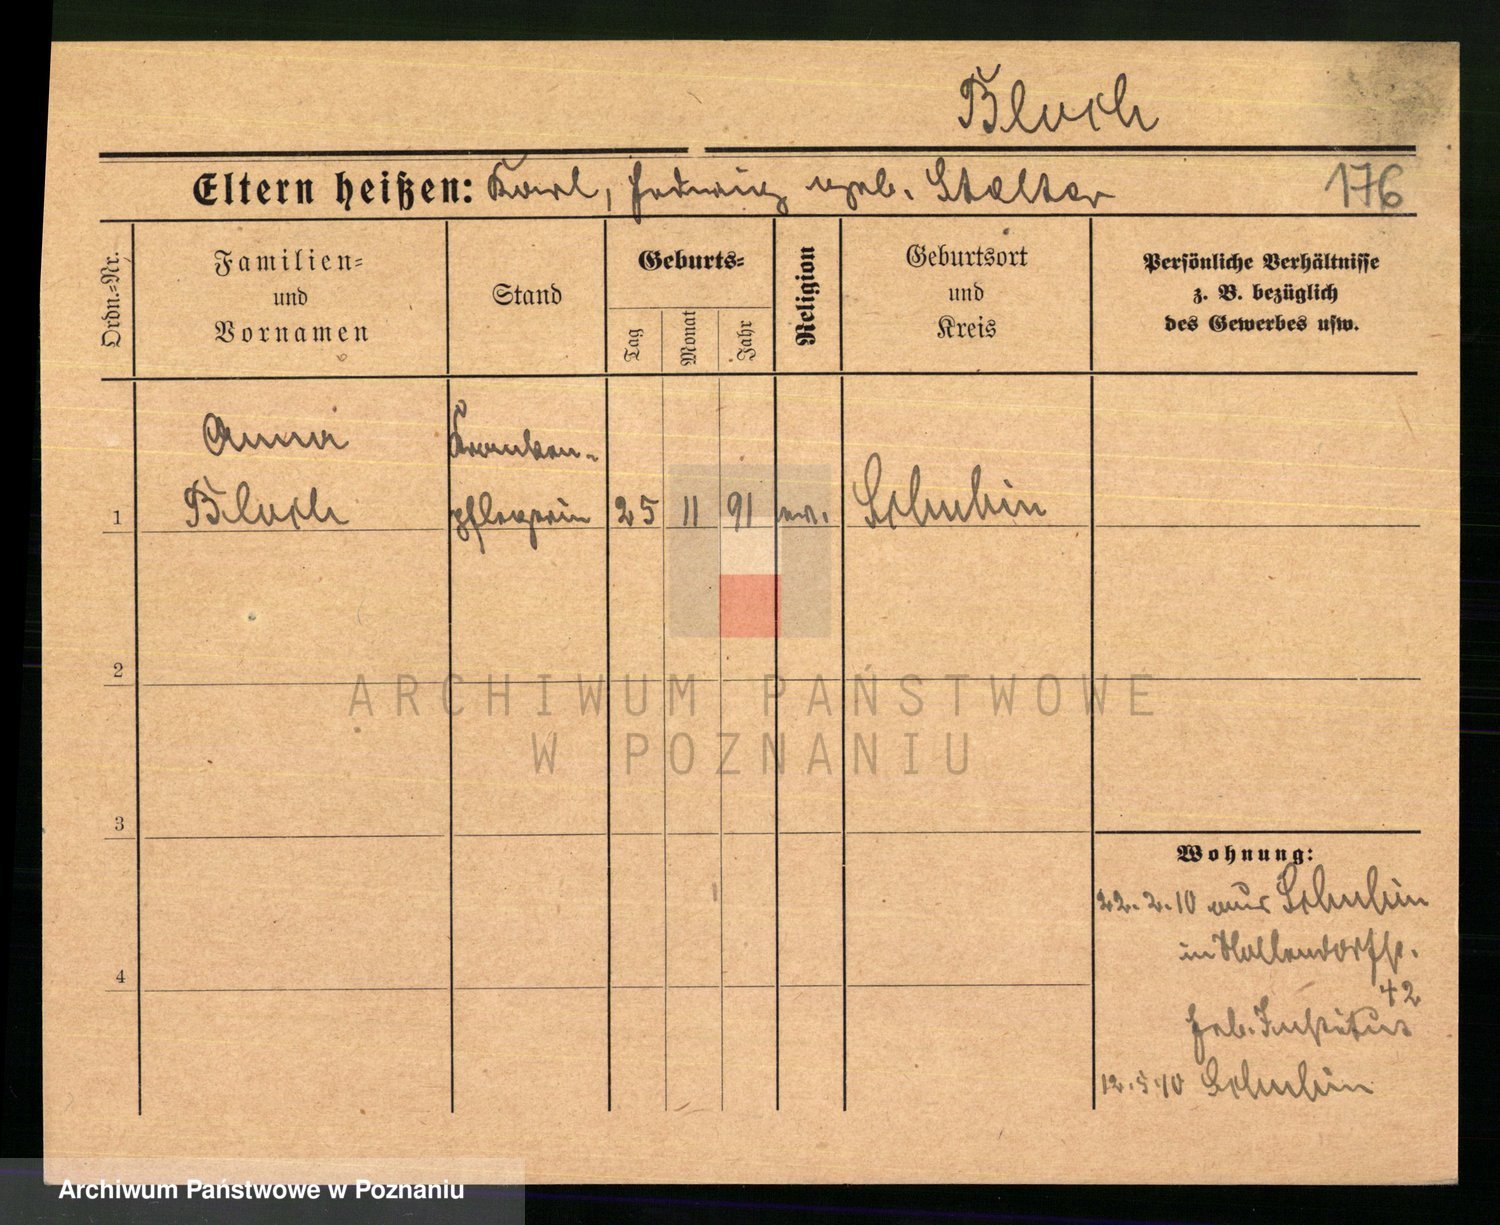 Bloch
Eltern heißen: Karl, Hedwig geb. Stelter
176
Ordn.-Nr.
Familien-
und
Vornamen
Stand
Geburts-
Tag
Monat
Jahr
Religion
Geburtsort
und
Kreis
Persönliche Verhältnisse
z. B. bezüglich
des Gewerbes usw.
Anna
Bloch
Kranken-
pflegerin
1
25
11
91
ev.
Schubin
2
3
4
Wohnung:
22.2.10 aus Schubin
in
42
Heb. Institut
12.5.10 Schubin
ARCHIWUM PAŃSTWOWE
W POZNANIU
Archiwum Państwowe w Poznaniu